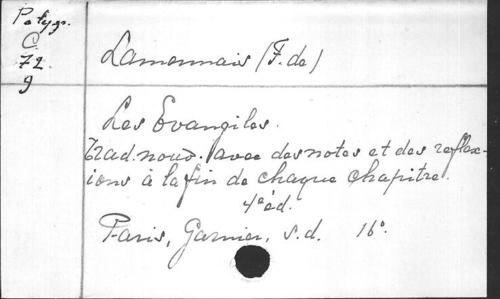 Polygr.
C.
72
9
Lamennais (F. de)
Les Evangiles.
Trad. nouv. avec des notes et des reflex-
ions à la fin de chaque chapitre.
4e éd.
Paris, Garnier, s.d. 16°.